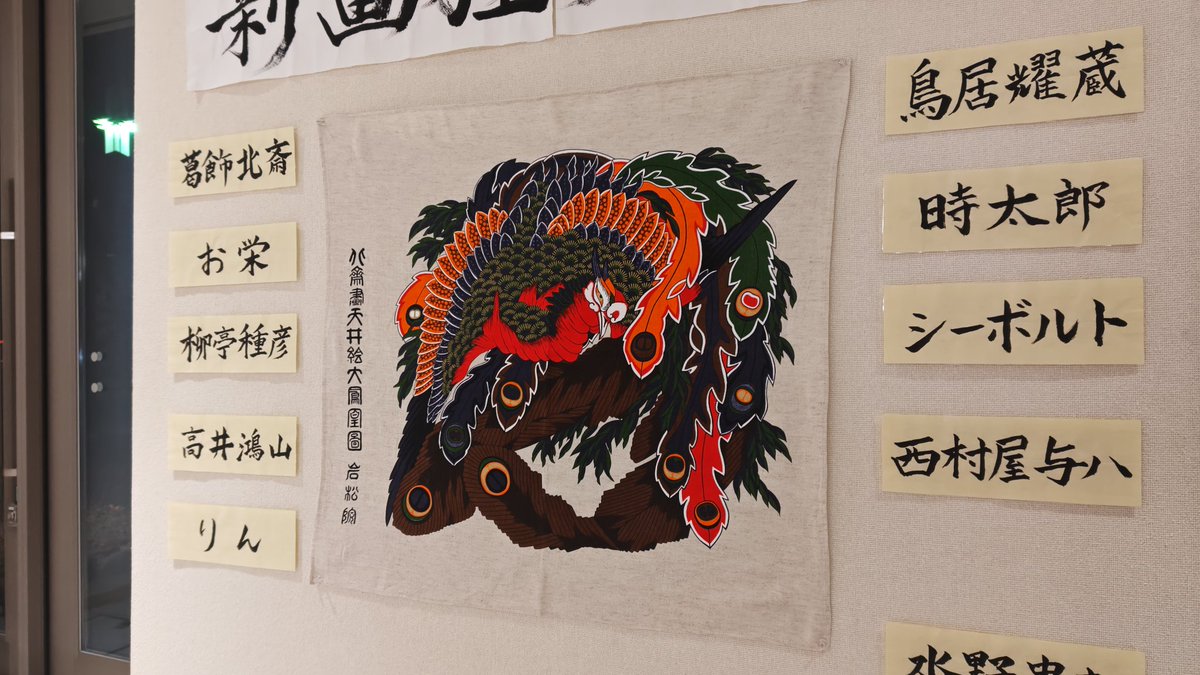 新画狂
葛飾北斎
お栄
柳亭種彦
高井鴻山
りん
北齋畫天井絵大鳳凰圖 岩松院
鳥居耀蔵
時太郎
シーボルト
西村屋与八
水野忠